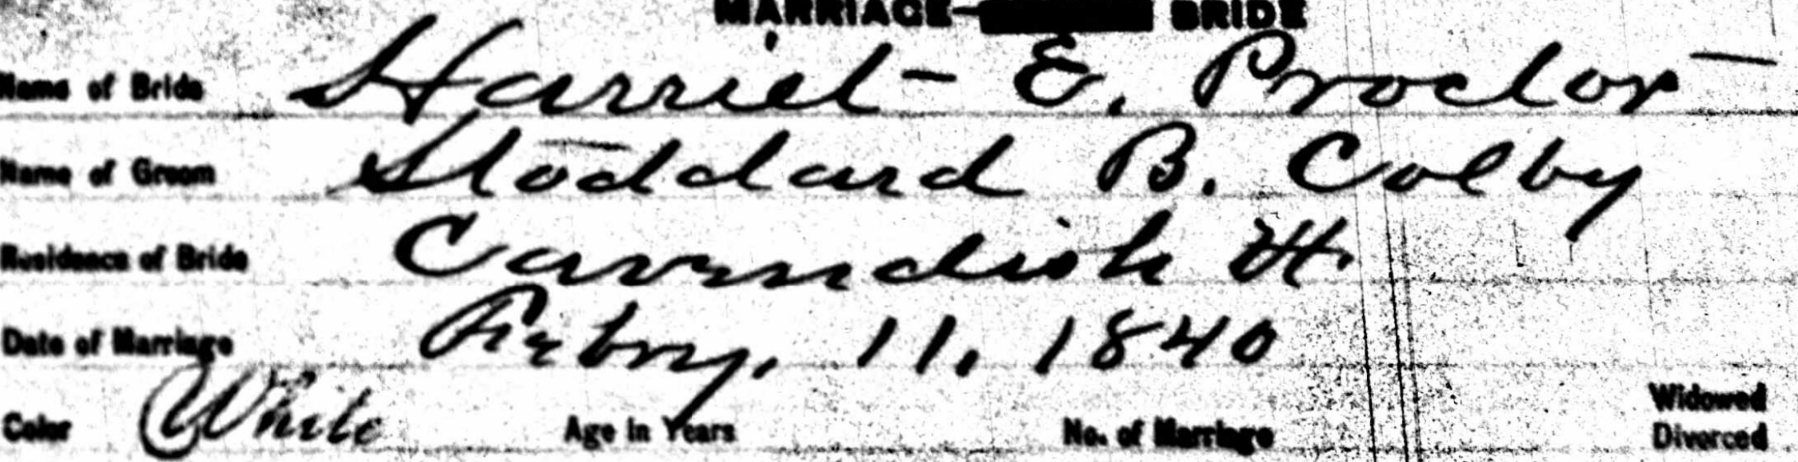 MARRIAGE— BRIDE
Name of Bride Harriet E. Proctor
Name of Groom Stoddard B. Colby
Residence of Bride Cavendish Vt.
Date of Marriage Febry. 11, 1840
Color White Age in Years No. of Marriage Widowed
Divorced